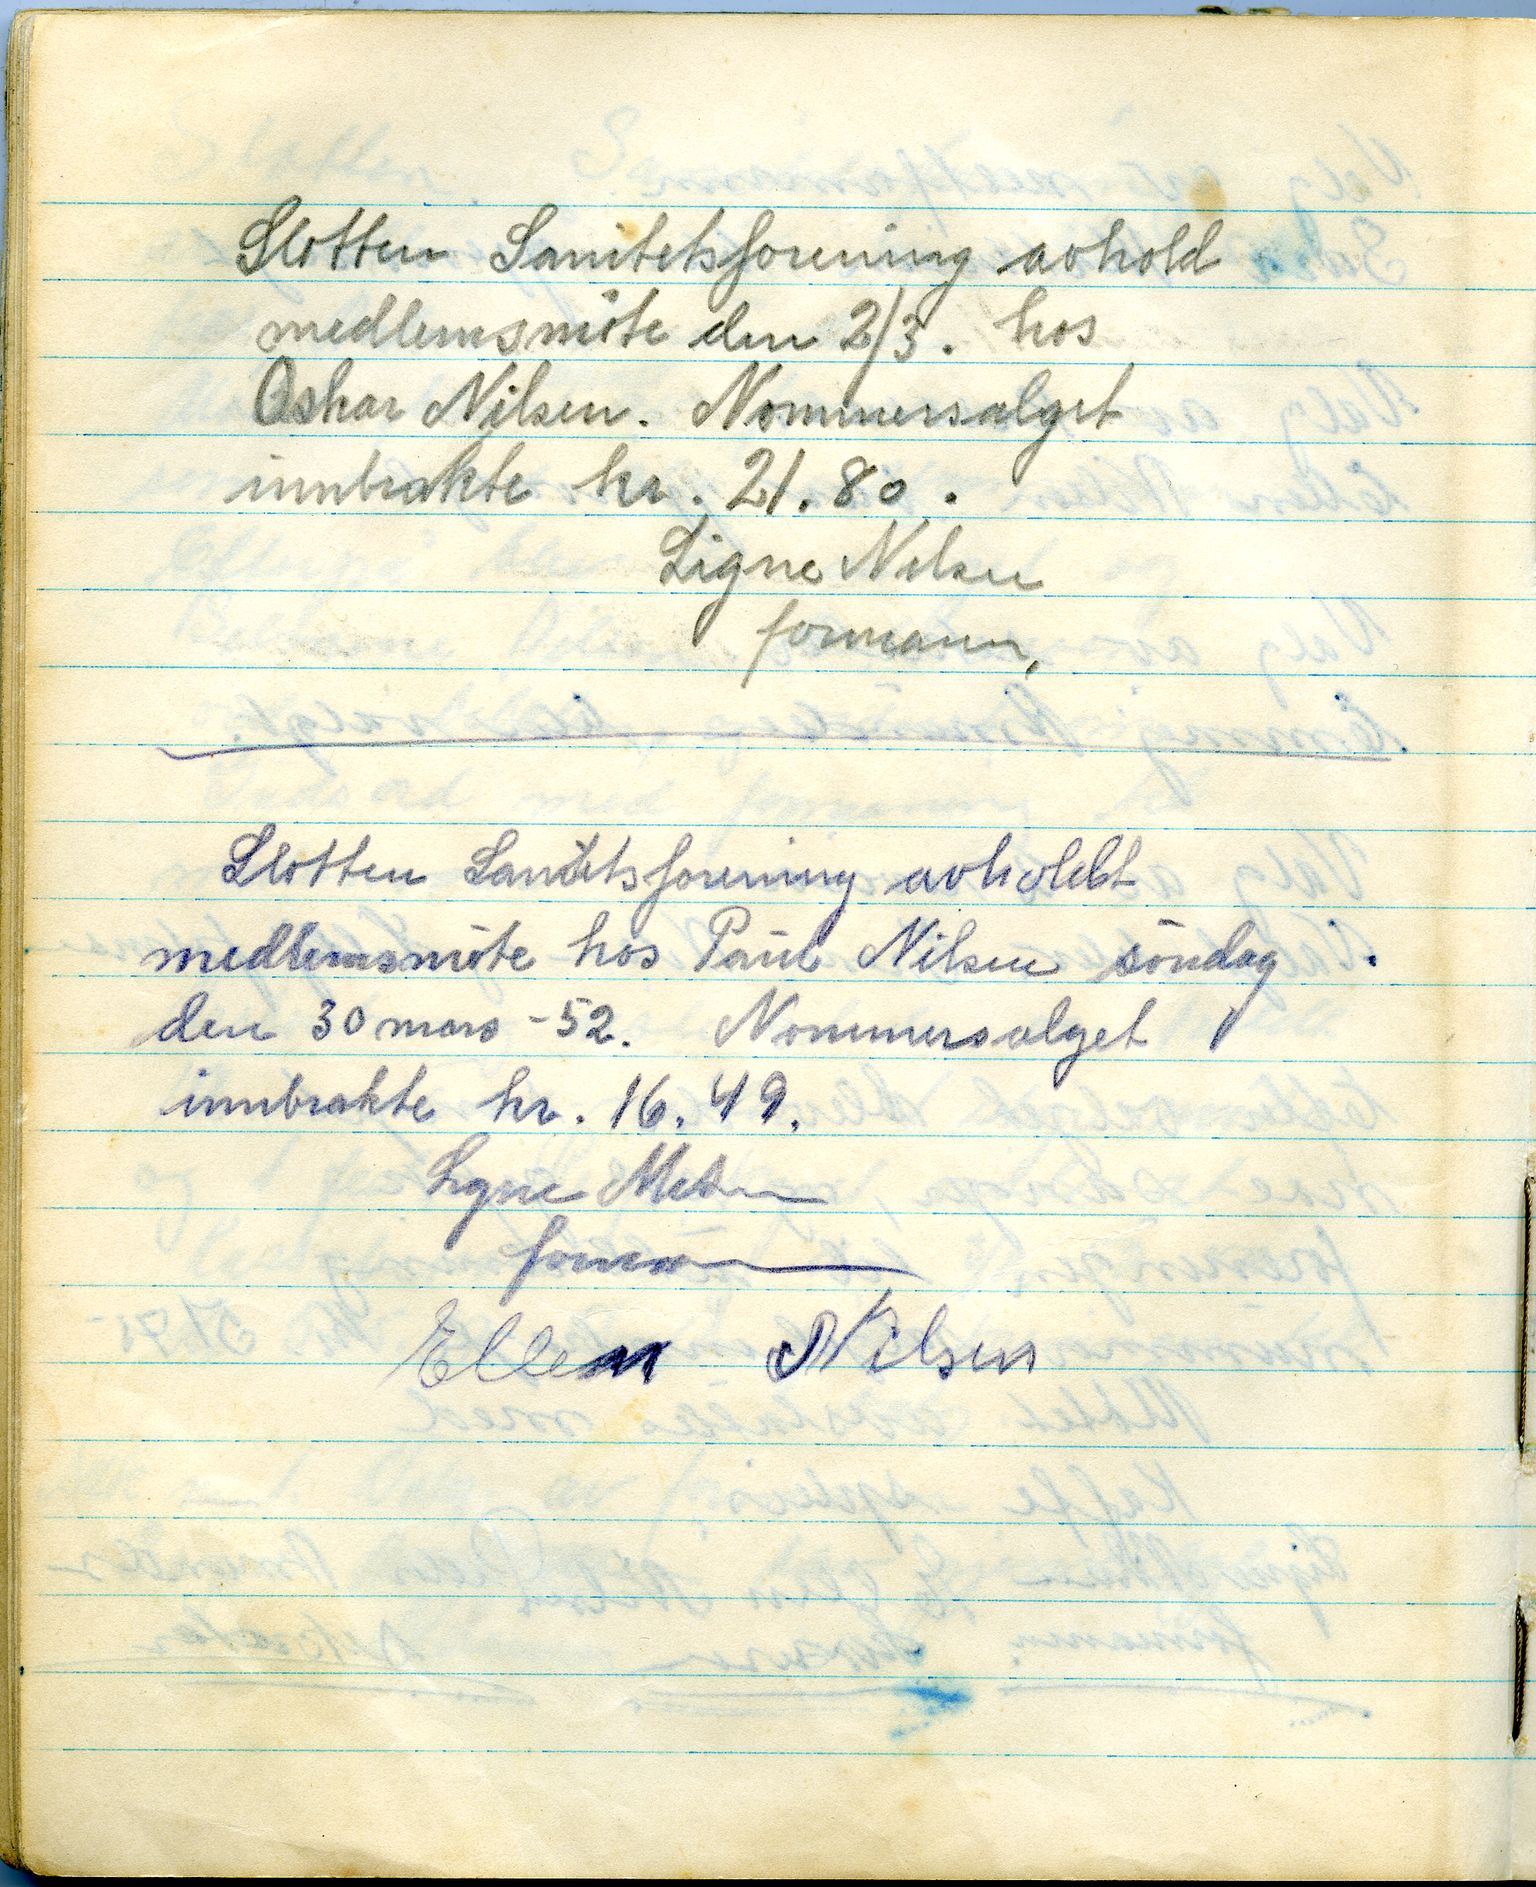 Slotten Sanitetsforening avhold
medlemsmöte den 2/3. hos
Oskar Nilsen. Nommersalget
innbrakte kr. 21.80.
Signe Nilsen
formann,
Slotten Sanitetsforening avholdt
medlemsmöte hos Paul Nilsen söndag
den 30 mars -52. Nommersalget
innbrakte kr. 16.49.
Signe
Ellen Nilsen